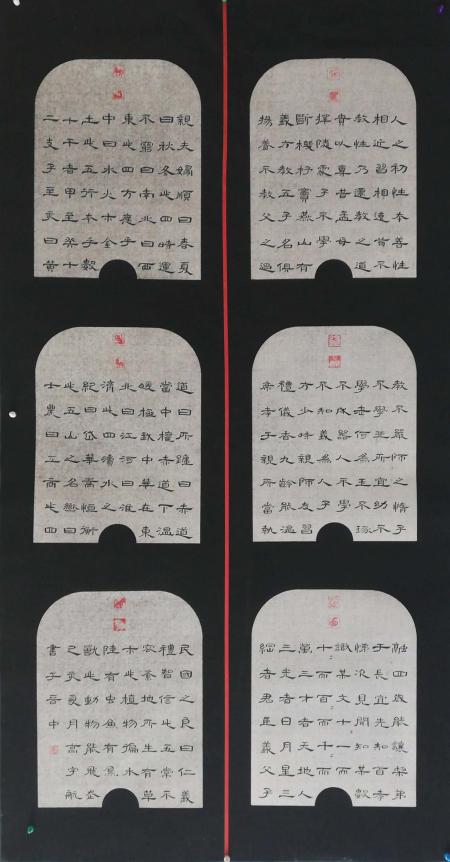 人之初性本善性
相近習相遠苟不
教性乃遷教之道
貴以專昔孟母
擇鄰處子不學
斷機杼竇燕山有
義方教五子名俱
揚養不教父之過
教不嚴師之惰子
不學非所宜幼不
學老何為玉不琢
不成器人不學
不知義為人子
方少時親師友習
禮儀香九齡能溫
席孝于親所當執
融四歲能讓梨弟
于長宜先知首孝
悌次見聞知某數
識某文十一而
十〻而百〻而千〻而
萬三才者天地人
三光者日月星三
綱者君臣義父子
親夫婦順曰春夏
曰秋冬此四時運
不窮曰南北曰西
東此四方應乎
中曰水火木金
土此五行本乎數
十干者甲至癸十
二支子至亥曰黃
道曰所躔曰赤道
當中權赤道下溫
煖極我中華在東
北曰江河曰淮
濟此四瀆水之
紀曰岱華嵩恒衡
此五山之名曰
士農曰工商此四
民國之良曰仁義
禮智信此五常不
容紊地所生有草
木此植物遍水
陸有蟲魚有鳥
獸此動物能飛走
之亥夏月高宇航
書于晉中